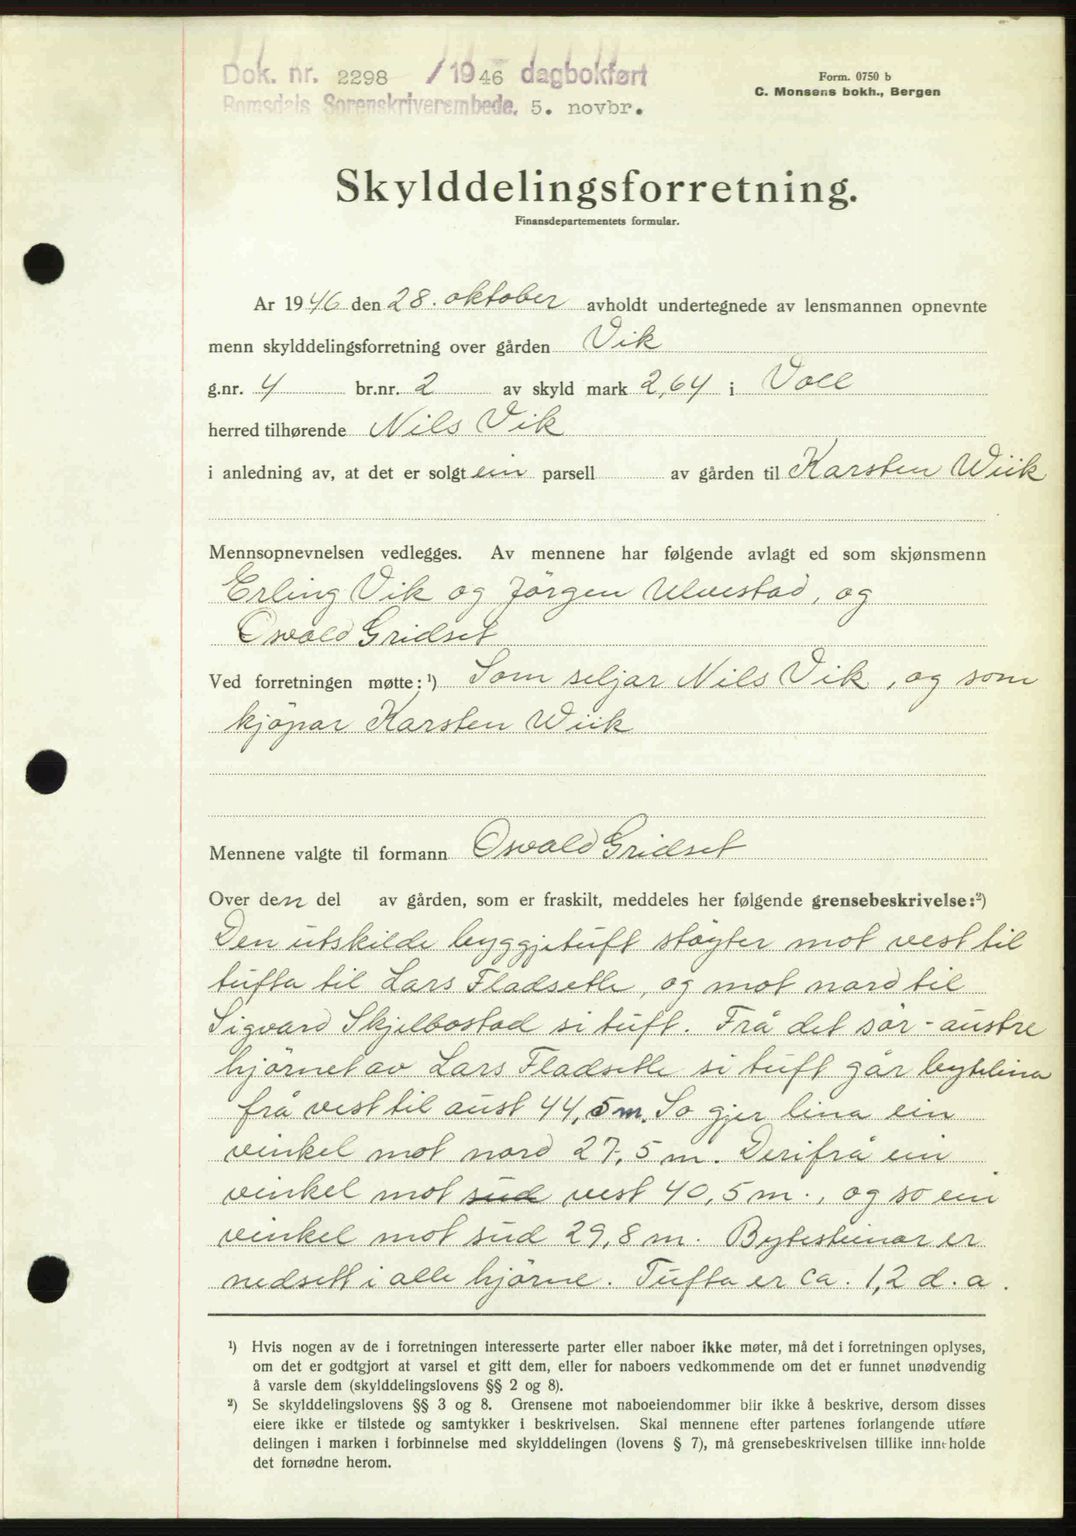 Dok. nr. 2298 /1946 dagbokført
Romsdals Sorenskriverembede. 5. novbr.
Form. 0750 b
C. Monsens bokh., Bergen
Skylddelingsforretning.
Finansdepartementets formular.
Ar 1946 den 28. oktober avholdt undertegnede av lensmannen opnevnte
menn skylddelingsforretning over gården Vik
g.nr. 4 br.nr. 2 av skyld mark 2,64 i Voll
herred tilhørende Nils Vik
i anledning av, at det er solgt ein parsell av gården til Karsten Wiik
Mennsopnevnelsen vedlegges. Av mennene har følgende avlagt ed som skjønsmenn
Erling Vik og Jörgen Ulvestad, og
Osvald Gridset
Ved forretningen møtte: ¹) Som seljar Nils Vik, og som
kjöpar Karsten Wiik
Mennene valgte til formann Osvald Gridset
Over den del av gården, som er fraskilt, meddeles her følgende grensebeskrivelse: ²)
Den utskilde byggjetuft støyter mot vest til
tufta til Lars Fladsetle, og mot nord til
Sigvard Skjelbostad si tuft. Frå det sör-austre
hjörnet av Lars Fladsetle si tuft går bytelina
frå vest til aust 44,5 m. So gjer lina ein
vinkel mot nord 27,5 m. Derifrå ein
vinkel mot sud vest 40,5 m., og so ein
vinkel mot sud 29,8 m. Bytesteinar er
nedsett i alle hjörne. Tufta er ca. 1,2 d.a.
¹) Hvis nogen av de i forretningen interesserte parter eller naboer ikke møter, må det i forretningen oplyses,
om det er godtgjort at varsel et gitt dem, eller for naboers vedkommende om det er funnet unødvendig
å varsle dem (skylddelingslovens §§ 2 og 8).
²) Se skylddelingslovens §§ 3 og 8. Grensene mot naboeiendommer blir ikke å beskrive, dersom disses
eiere ikke er tilstede og samtykker i beskrivelsen. Skal mennene efter partenes forlangende utføre
delingen i marken i forbinnelse med skylddelingen (lovens § 7), må grensebeskrivelsen tillike inneholde
det fornødne herom.